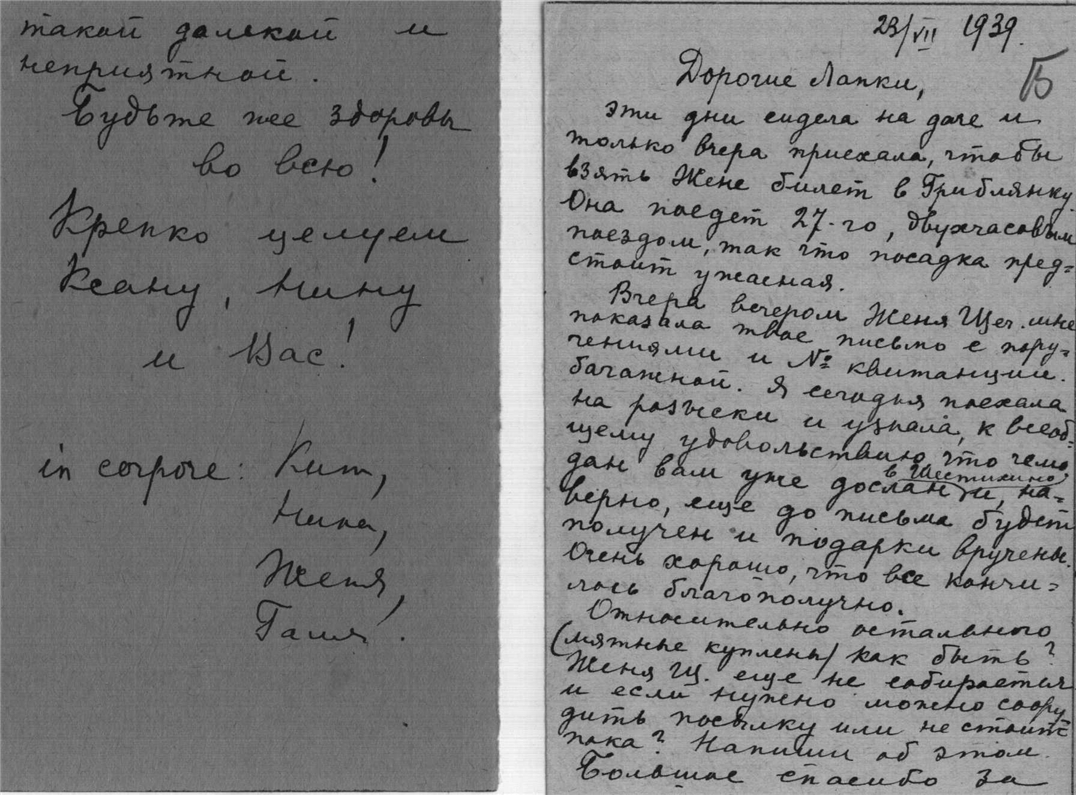 такой далекой и
неприятной.
Будьте же здоровы
во всю!
Крепко целуем
Ксану, Нину
и Вас!
in corpore: Кит,
Нина,
Женя,
Галя.
23/VII 1939.
Б
Дорогие Лапки,
эти дни сидела на даче и
только вчера приехала, чтобы
взять Жене билет в Гриблянку.
Она поедет 27-го, двухчасовым
поездом, так что посадка пред=
стоит ужасная.
Вчера вечером Женя Щег. мне
показала твое письмо с пору=
чениями и № квитанции
багажной. Я сегодня поехала
на розыски и узнала, к всеоб=
щему удовольствию, что чемо
дан вам уже дослан в Шестихино и, на=
верно, еще до письма будет
получен и подарки вручены.
Очень хорошо, что все кончи=
лось благополучно.
Относительно остального
(мятные куплены) как быть?
Женя Щ. еще не собирается
и если нужно можно соору
дить посылку или не стоит
пока? Напиши об этом.
Большое спасибо за